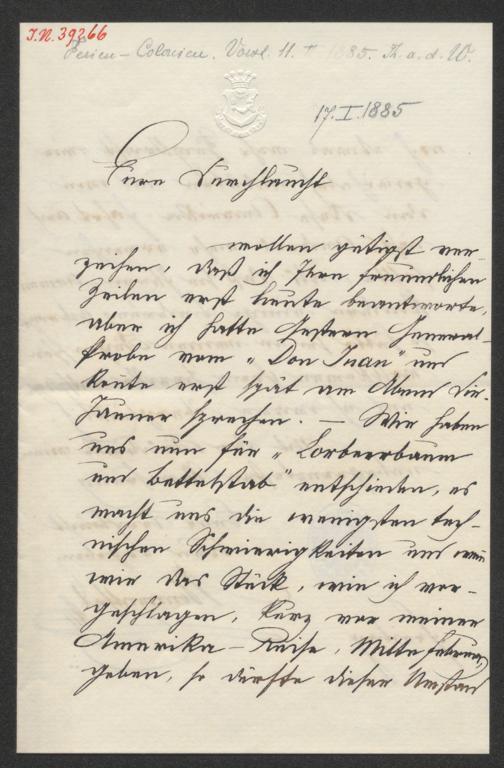 I.N. 39266
Ferien-Colonien. Vorst. 11. II 1885. Th. a. d. W.
17. I. 1885
Eure Durchlaucht
wollen gütigst ver-
zeihen, daß ich Ihre freundlichen
Zeilen erst heute beantworte,
aber ich hatte gestern General-
probe vom „Don Juan" und
konnte erst spät am Abend Dir.
Jauner sprechen. — Wir haben
uns nun für „Lorbeerbaum
und Bettelstab" entschieden, es
macht uns die wenigsten tech-
nischen Schwierigkeiten und wenn
wir das Stück, wie ich vor-
geschlagen, kurz vor meiner
Amerika-Reise, Mitte Februar,
geben, so dürfte dieser Umstand